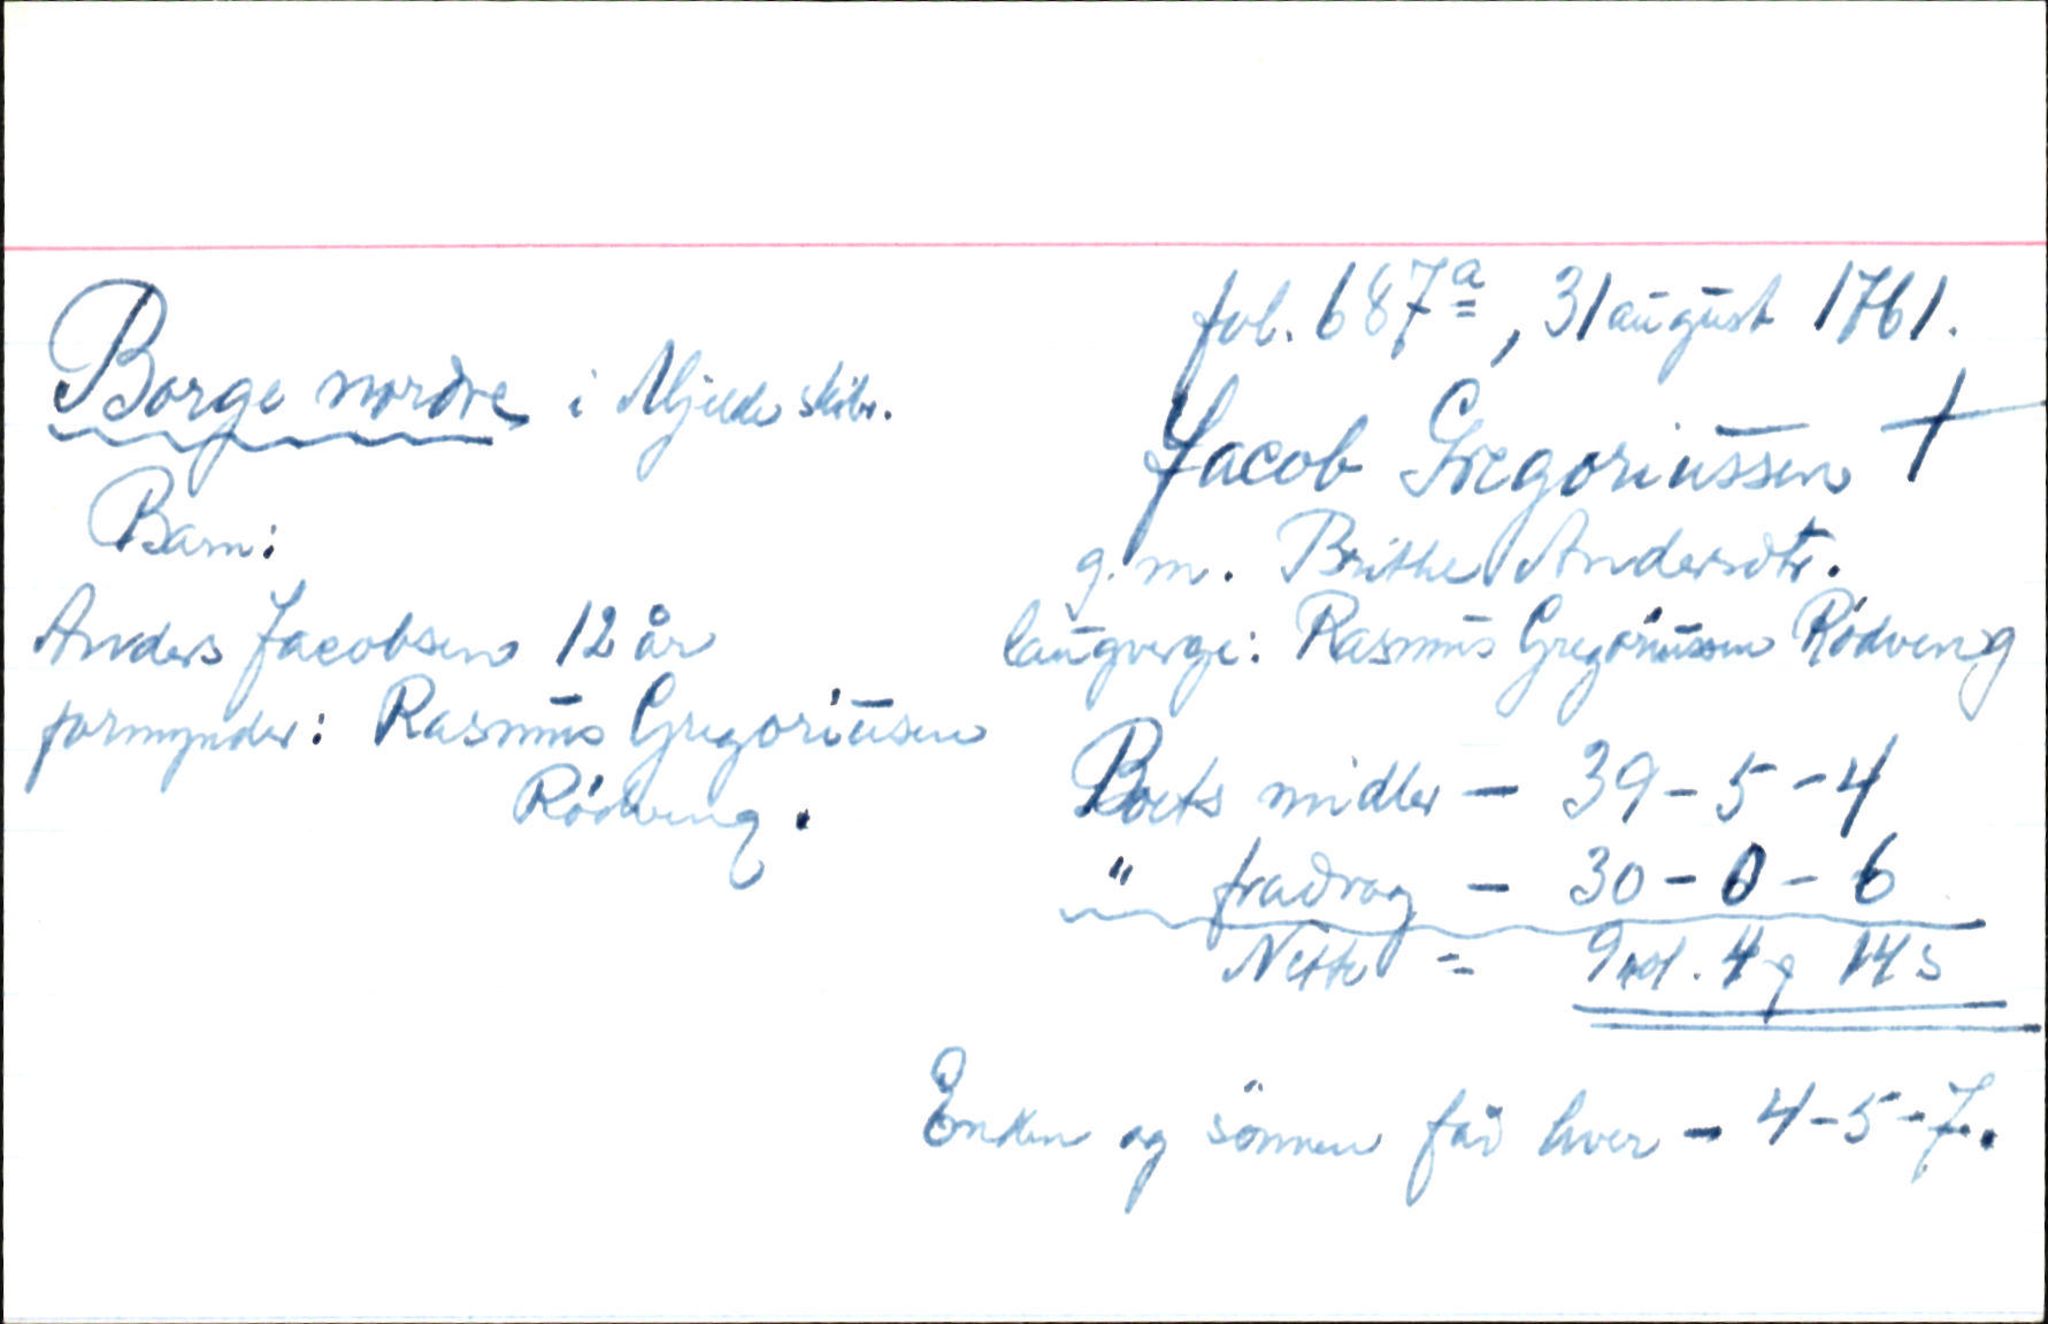 fol. 687ª, 31 august 1761.
Borge nordre i Mjelde skibr.
Jacob Gregoriussen †
g. m. Brithe Andersdtr.
laugverge: Rasmus Gregoriussen Rödveng
Barn:
Anders Jacobsen 12 år
formynder: Rasmus Gregoriusen
Rödveng.
Boets midler – 39 – 5 – 4
" fradrag – 30 – 0 – 6
Netto = 9 rd. 4 ƍ 14 s
Enken og sönnen får hver – 4 – 5 – 7.